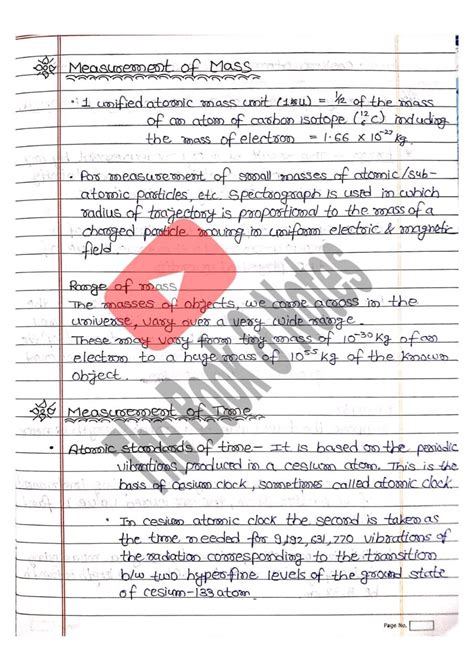 Measurement of Mass
• 1 unified atomic mass unit (1u) = 1/12 of the mass
of an atom of carbon isotope (¹²₆C) including
the mass of electron = 1.66 × 10⁻²⁷ kg.
• For measurement of small masses of atomic/sub-
atomic particles, etc. Spectrograph is used in which
radius of trajectory is proportional to the mass of a
charged particle moving in uniform electric & magnetic
field.
Range of mass
The masses of objects, we come across in the
universe, vary over a very wide range.
These may vary from tiny mass of 10⁻³⁰ kg of an
electron to a huge mass of 10⁵⁵ kg of the known
Object.
Measurement of Time
• Atomic standards of time - It is based on the periodic
vibrations produced in a cesium atom. This is the
basis of cesium clock, sometimes called atomic clock.
• In cesium atomic clock the second is taken as
the time needed for 9,192,631,770 vibrations of
the radiation corresponding to the transition
b/w two hyperfine levels of the ground state
of cesium-133 atom.
Page No.
The Book & Notes